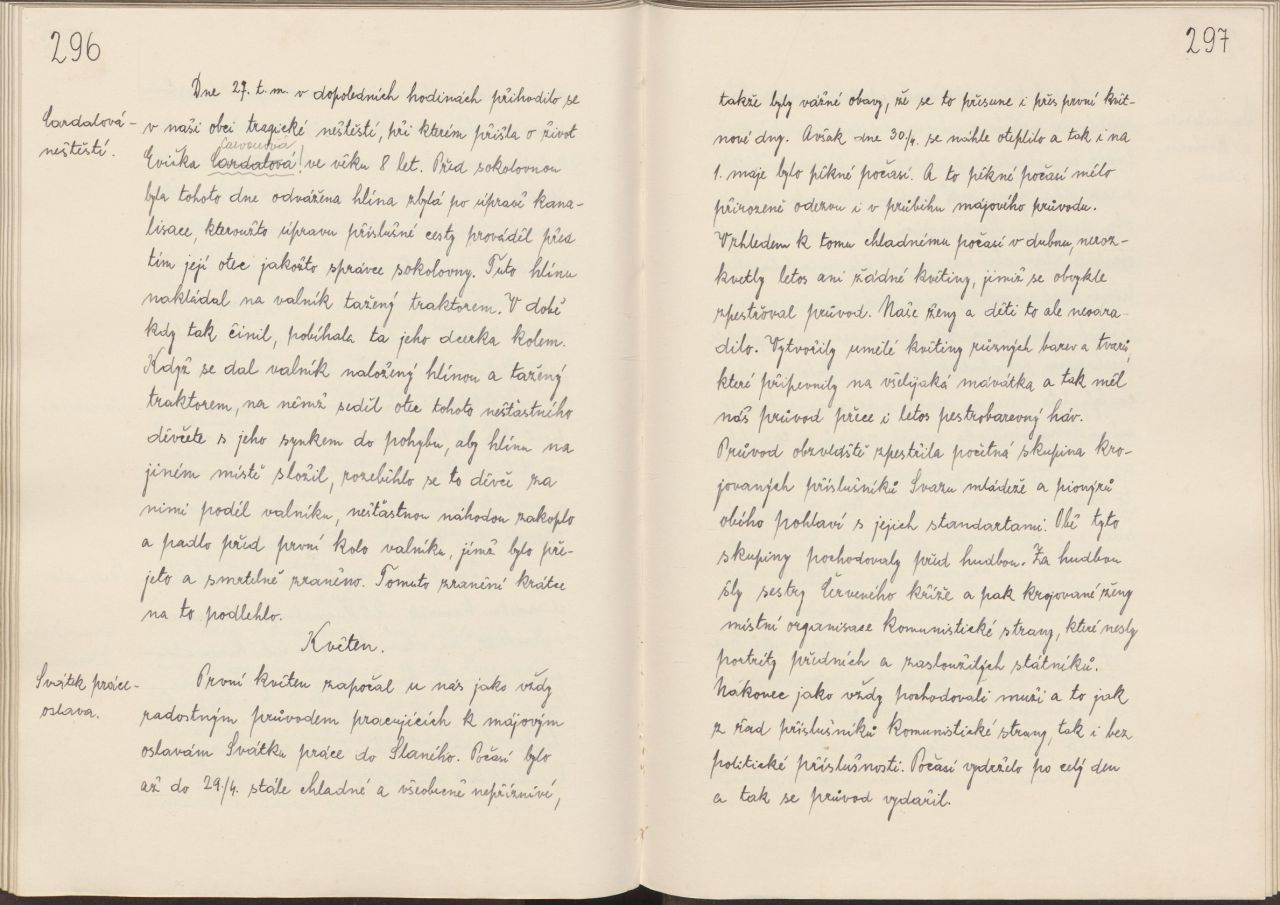 296
Dne 27. t. m. v dopoledních hodinách přihodilo se
Cardalová -
neštěstí.
v naší obci tragické neštěstí, při kterém přišla o život
Evička Cardalová! ve věku 8 let. Před sokolovnou
byla tohoto dne odvážena hlína zbylá po úpravě kana-
lisace, kteroužto úpravu příslušné cesty prováděl před
tím její otec jakožto správce sokolovny. Tuto hlínu
nakládal na valník tažený traktorem. V době
kdy tak činil, pobíhala ta jeho dcerka kolem.
Když se dal valník naložený hlínou a tažený
traktorem, na němž seděl otec tohoto nešťastného
děvčete s jeho synkem do pohybu, aby hlínu na
jiném místě složil, rozeběhlo se to děvče za
nimi podél valníku, nešťastnou náhodou zakoplo
a padlo před první kolo valníku, jímž bylo pře-
jeto a smrtelně zraněno. Tomuto zranění krátce
na to podlehlo.
Květen.
Svátek práce -
oslava.
První květen započal u nás jako vždy
radostným průvodem pracujících k májovým
oslavám Svátku práce do Slaného. Počasí bylo
až do 29./4. stále chladné a všeobecně nepříznivé,
297
takže byly vážné obavy, že se to přesune i přes první květ-
nové dny. Avšak dne 30./4. se náhle oteplilo a tak i na
1. máje bylo pěkné počasí. A to pěkné počasí mělo
přirozeně odezvu i v průběhu májového průvodu.
Vzhledem k tomu chladnému počasí v dubnu, neroz-
kvetly letos ani žádné květiny, jimiž se obvykle
zpestřoval průvod. Naše ženy a děti to ale nevadi-
dilo. Vytvořily umělé květiny různých barev a tvarů,
které připevnily na všelijaká mávátka, a tak měl
náš průvod přece i letos pestrobarevný háv.
Průvod obzvláště zpestřila početná skupina kro-
jovaných příslušníků Svazu mládeže a pionýrů
obého pohlaví s jejich standartami. Obě tyto
skupiny pochodovaly před hudbou. Za hudbou
šly sestry Červeného kříže a pak krojované ženy
místní organisace komunistické strany, které nesly
portréty předních a zasloužilých státníků.
Nakonec jako vždy pochodovali muži a to jak
z řad příslušníků komunistické strany, tak i bez
politické příslušnosti. Počasí vydrželo po celý den
a tak se průvod vydařil.